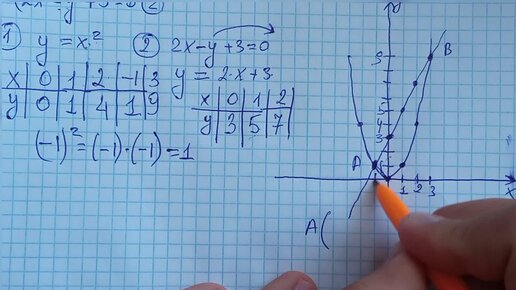 1 y = x² 2 2x-y+3=0
y = 2·x+3
x 0 1 2 -1 3
y 0 1 4 1 9
x 0 1 2
y 3 5 7
(-1)² = (-1)·(-1) = 1
9
B
5
4
3
A
1
1 2 3
x
A(